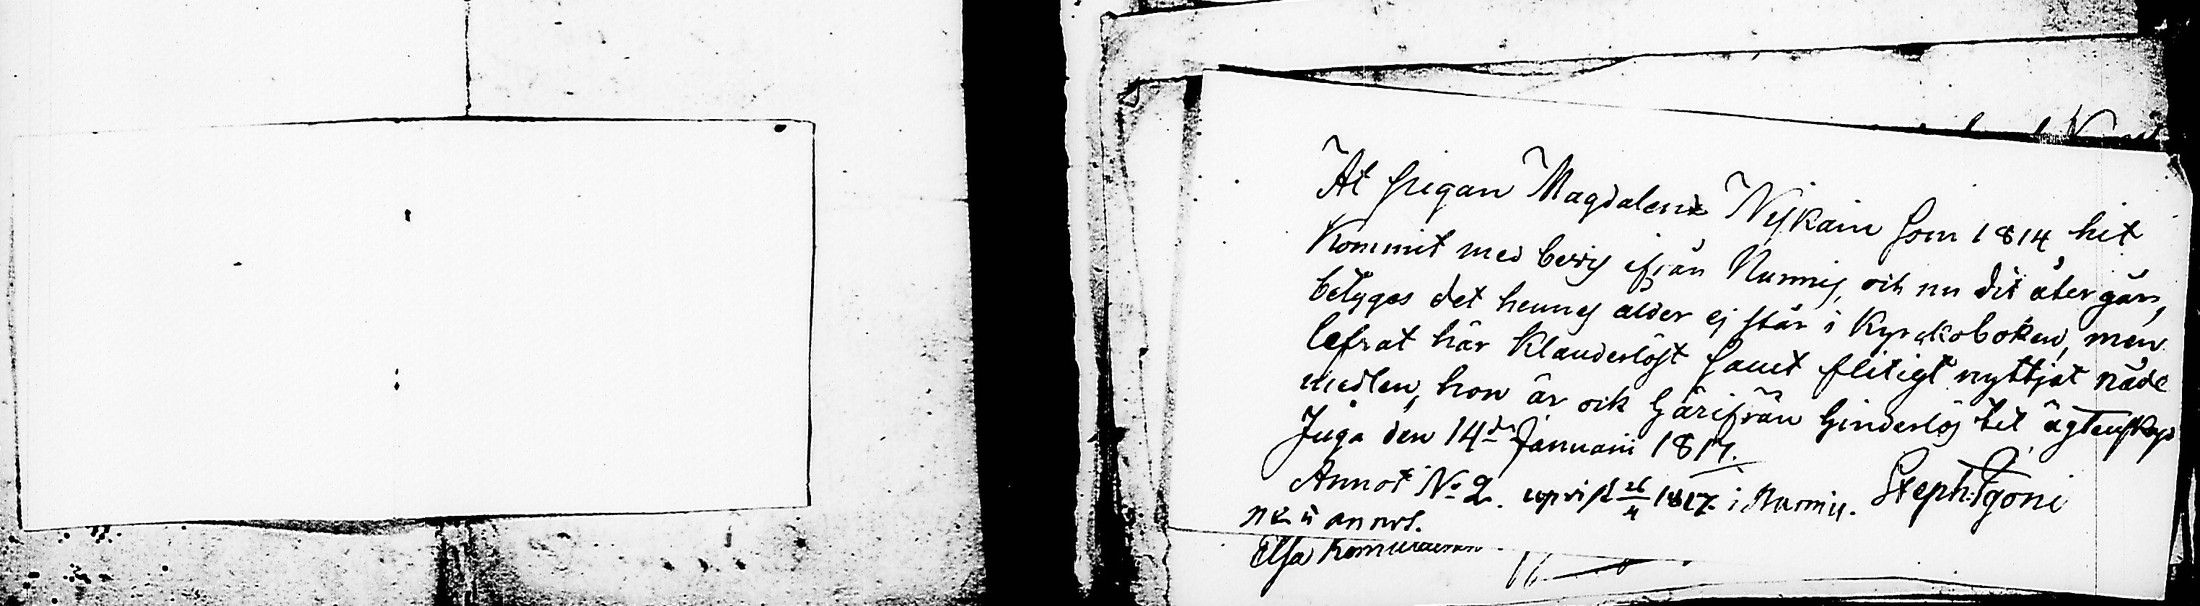 At pigan Magdalena Nykain som 1814 hit
kommit med bevis ifrån Nummis, och nu dit återgår,
betyges det hennes ålder ej står i Kyrckoboken, men
lefvat här klanderlöst samt flitigt nyttjat nåde
medlen, hon är ock härifrån hinderlös til ägtenskap
Inga den 14de Januarii 1817.
Annot No 2. uprist 26/4 1817 i Nummis. Steph. Tgoni
No annot.
Elsa